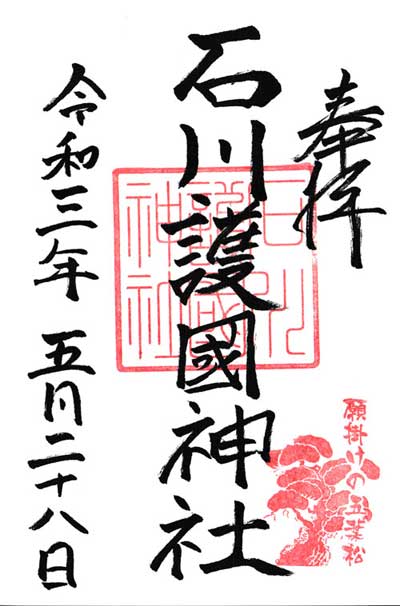 奉拝
石川護國神社
石川護國神社
令和三年 五月二十八日
願掛けの五葉松